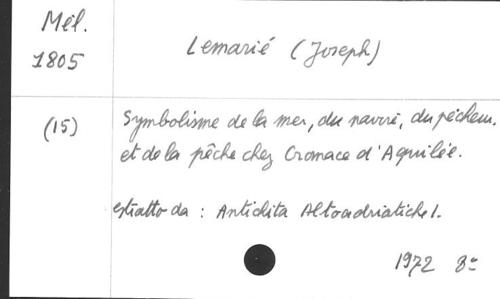 Mél.
1805
Lemarié (Joseph)
(15)
Symbolisme de la mer, du navire, du pêcheur,
et de la pêche chez Cromace d'Aquilée.
estratto da : Antichita Altoadriatiche 1.
1972 8°